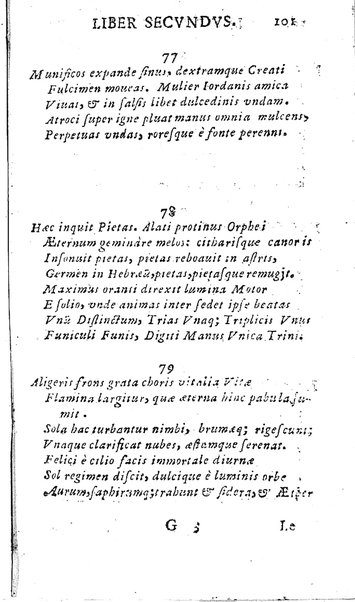 LIBER SECVNDVS. 101
77
Munificos expande sinus, dextramque Creati
Fulcimen moueas. Mulier Iordanis amica
Viuat, & in salsis libet dulcedinis vndam.
Atroci super igne pluat manus omnia mulcens,
Perpetuas vndas, roresque è fonte perenni.
78
Hæc inquit Pietas. Alati protinus Orphei
Æternum geminare melos: citharisque canoris
Insonuit pietas, pietas reboauit in astris,
Germen in Hebræũ, pietas, pietasque remugit.
Maximus oranti direxit lumina Motor
E solio, vnde animas inter sedet ipse beatas
Vnũ Distinctum, Trias Vnaq; Triplicis Vnus
Funiculi Funis, Digiti Manus Vnica Trini.
79
Aligeris frons grata choris vitalia Vitæ
Flamina largitur, quæ æterna hinc pabula su-
mit.
Sola hac turbantur nimbi, brumæq; rigescunt;
Vnaque clarificat nubes, æstamque serenat.
Felici è cilio facis immortale diurnæ
Sol regimen discit, dulcique è luminis orbe
Aurum, saphirumq; trahunt & sidera, & Æther
G 3 Le